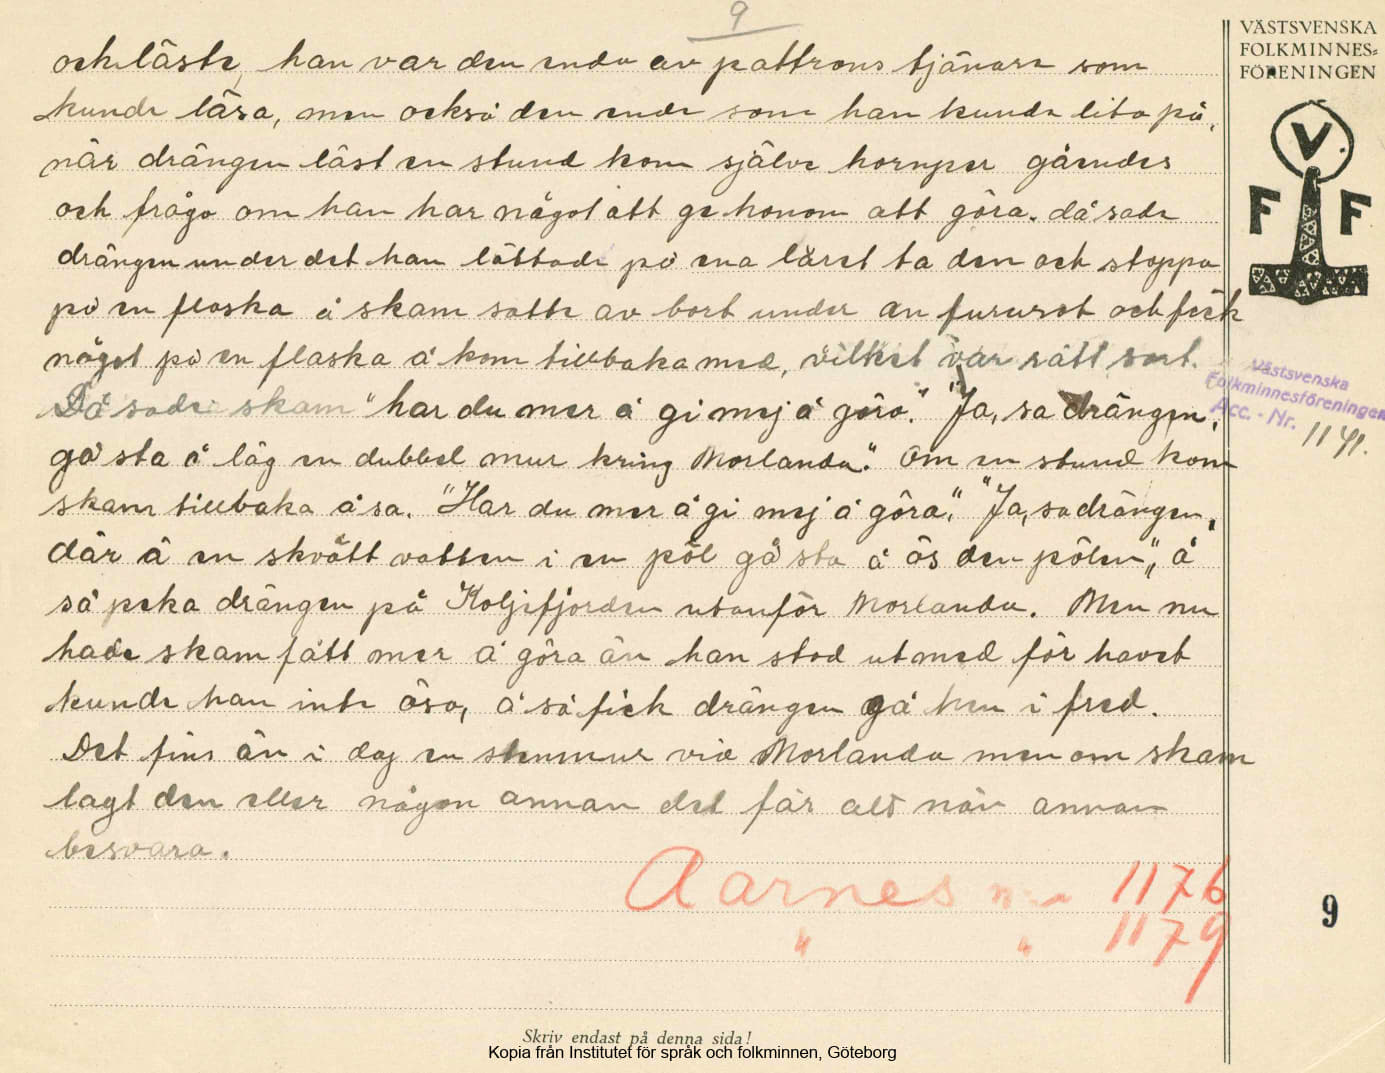 9
och läste, han var den enda av pattrons tjänare som
kunde läsa, men också den ende som han kunde lita på,
när drängen läst en stund kom själve hornper gåendes
och frågo om han har något att ge honom att göra. då sade
drängen under det han lättade på ena låret ta den och stoppa
på en flaska å skam satte av bort under en fururot och fick
något på en flaska å kom tillbaka med, vilket var rätt sort.
Då sade skam "har du mer å gi mej å göra." "Ja, sa drängen,
gå sta å läg en dubbel mur kring Morlanda." Om en stund kom
skam tillbaka å sa. "Har du mer å gi mej å göra". "Ja, sa drängen,
där ä en skvätt vatten i en pöl gå sta å ös den pölen", å
så peka drängen på Koljefjorden utanför Morlanda. Men nu
hade skam fått mer å göra än han stod ut med för havet
kunde han inte ösa, å så fick drängen gå hem i fred.
Det fins än i dag en stenmur vid Morlanda men om skam
lagt den eller någon annan det får alt nån annan
besvara.
Aarnes n:a 1176
" " 1179
VÄSTSVENSKA
FOLKMINNES-
FÖRENINGEN
V
F F
Västsvenska
Folkminnesföreningen
Acc. - Nr. 1141.
9
Skriv endast på denna sida!
Kopia från Institutet för språk och folkminnen, Göteborg